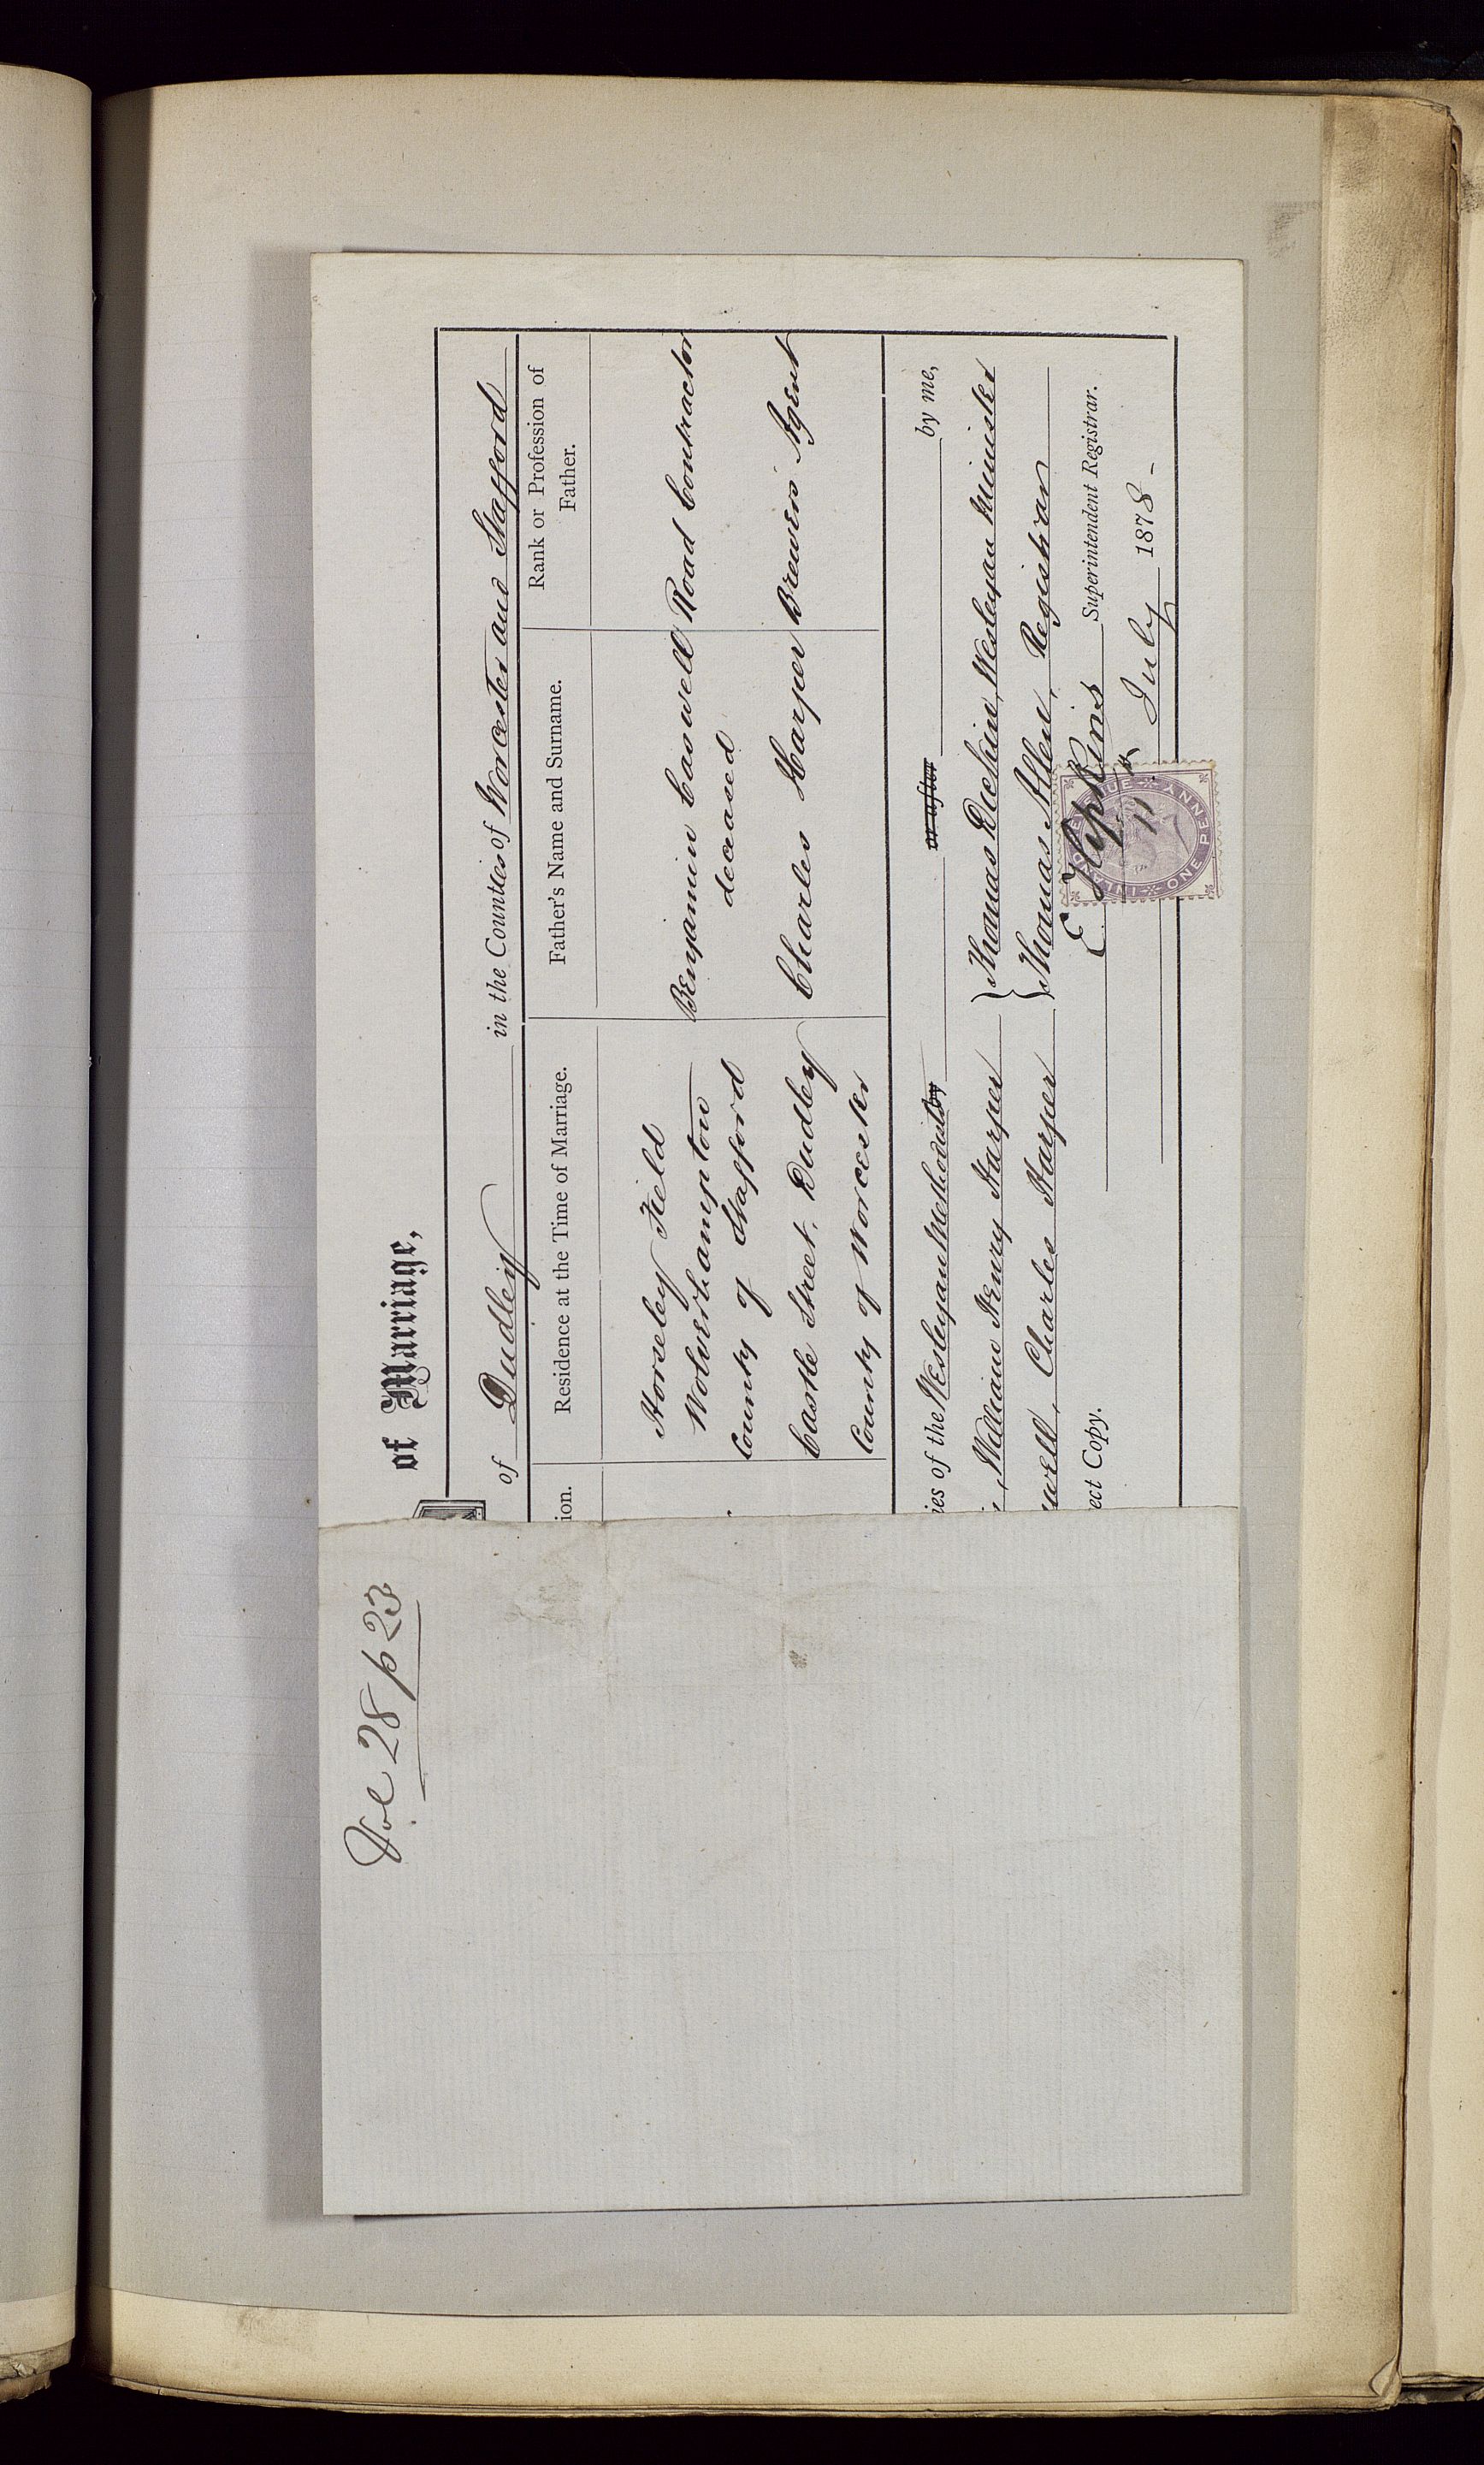 Vol 28 p 23
of Marriage,
of Dudley in the Counties of Worcester and Stafford
ion. Residence at the Time of Marriage. Father's Name and Surname. Rank or Profession of Father.
Horseley Field
Wolverhampton
County of Stafford
Benjamin Caswell
deceased
Road Contractor
Castle Street, Dudley
County of Worcester
Charles Harper
Brewers Agent
ies of the Wesleyan Methodists by or after by me,
William Henry Harper
well, Charles Harper
Thomas Dickin, Wesleyan Minister
Thomas Allen, Registrar
ect Copy. E. Hipkins Superintendent Registrar.
11th July 1878
INLAND REVENUE
ONE PENNY